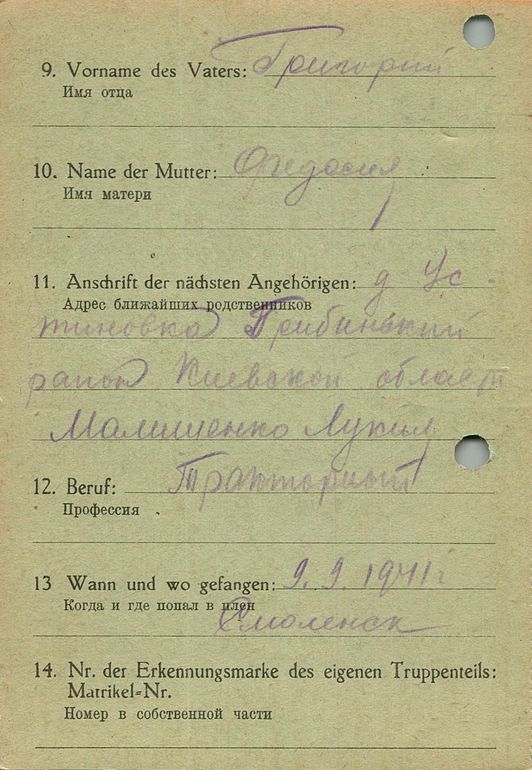 9. Vorname des Vaters: Григорий
Имя отца
10. Name der Mutter: Федосия
Имя матери
11. Anschrift der nächsten Angehörigen: д Ус-
Адрес ближайших родственников
тиновка Грибинький
район Киевской област
Малишенко Лукия
12. Beruf: Тракторист
Профессия
13 Wann und wo gefangen: 9. 9. 1941 г
Когда и где попал в плен
Смоленск
14. Nr. der Erkennungsmarke des eigenen Truppenteils:
Matrikel=Nr.
Номер в собственной части